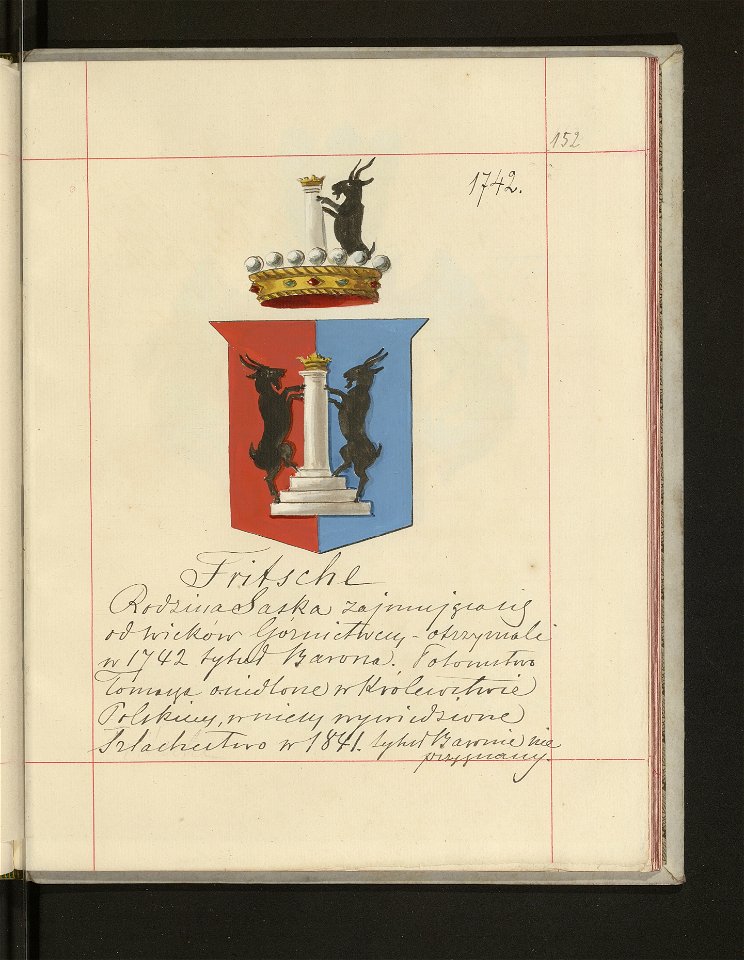 152
1742.
Fritsche
Rodzina Saska zajmująca się
od wieków Górnictwem - otrzymali
w 1742 tytuł Barona. Potomstwo
Tomasza osiedlone w Królewstwie
Polskiem, w niem wywiedzione
Szlachectwo w 1841. tytuł Baronie nie
przyznany.